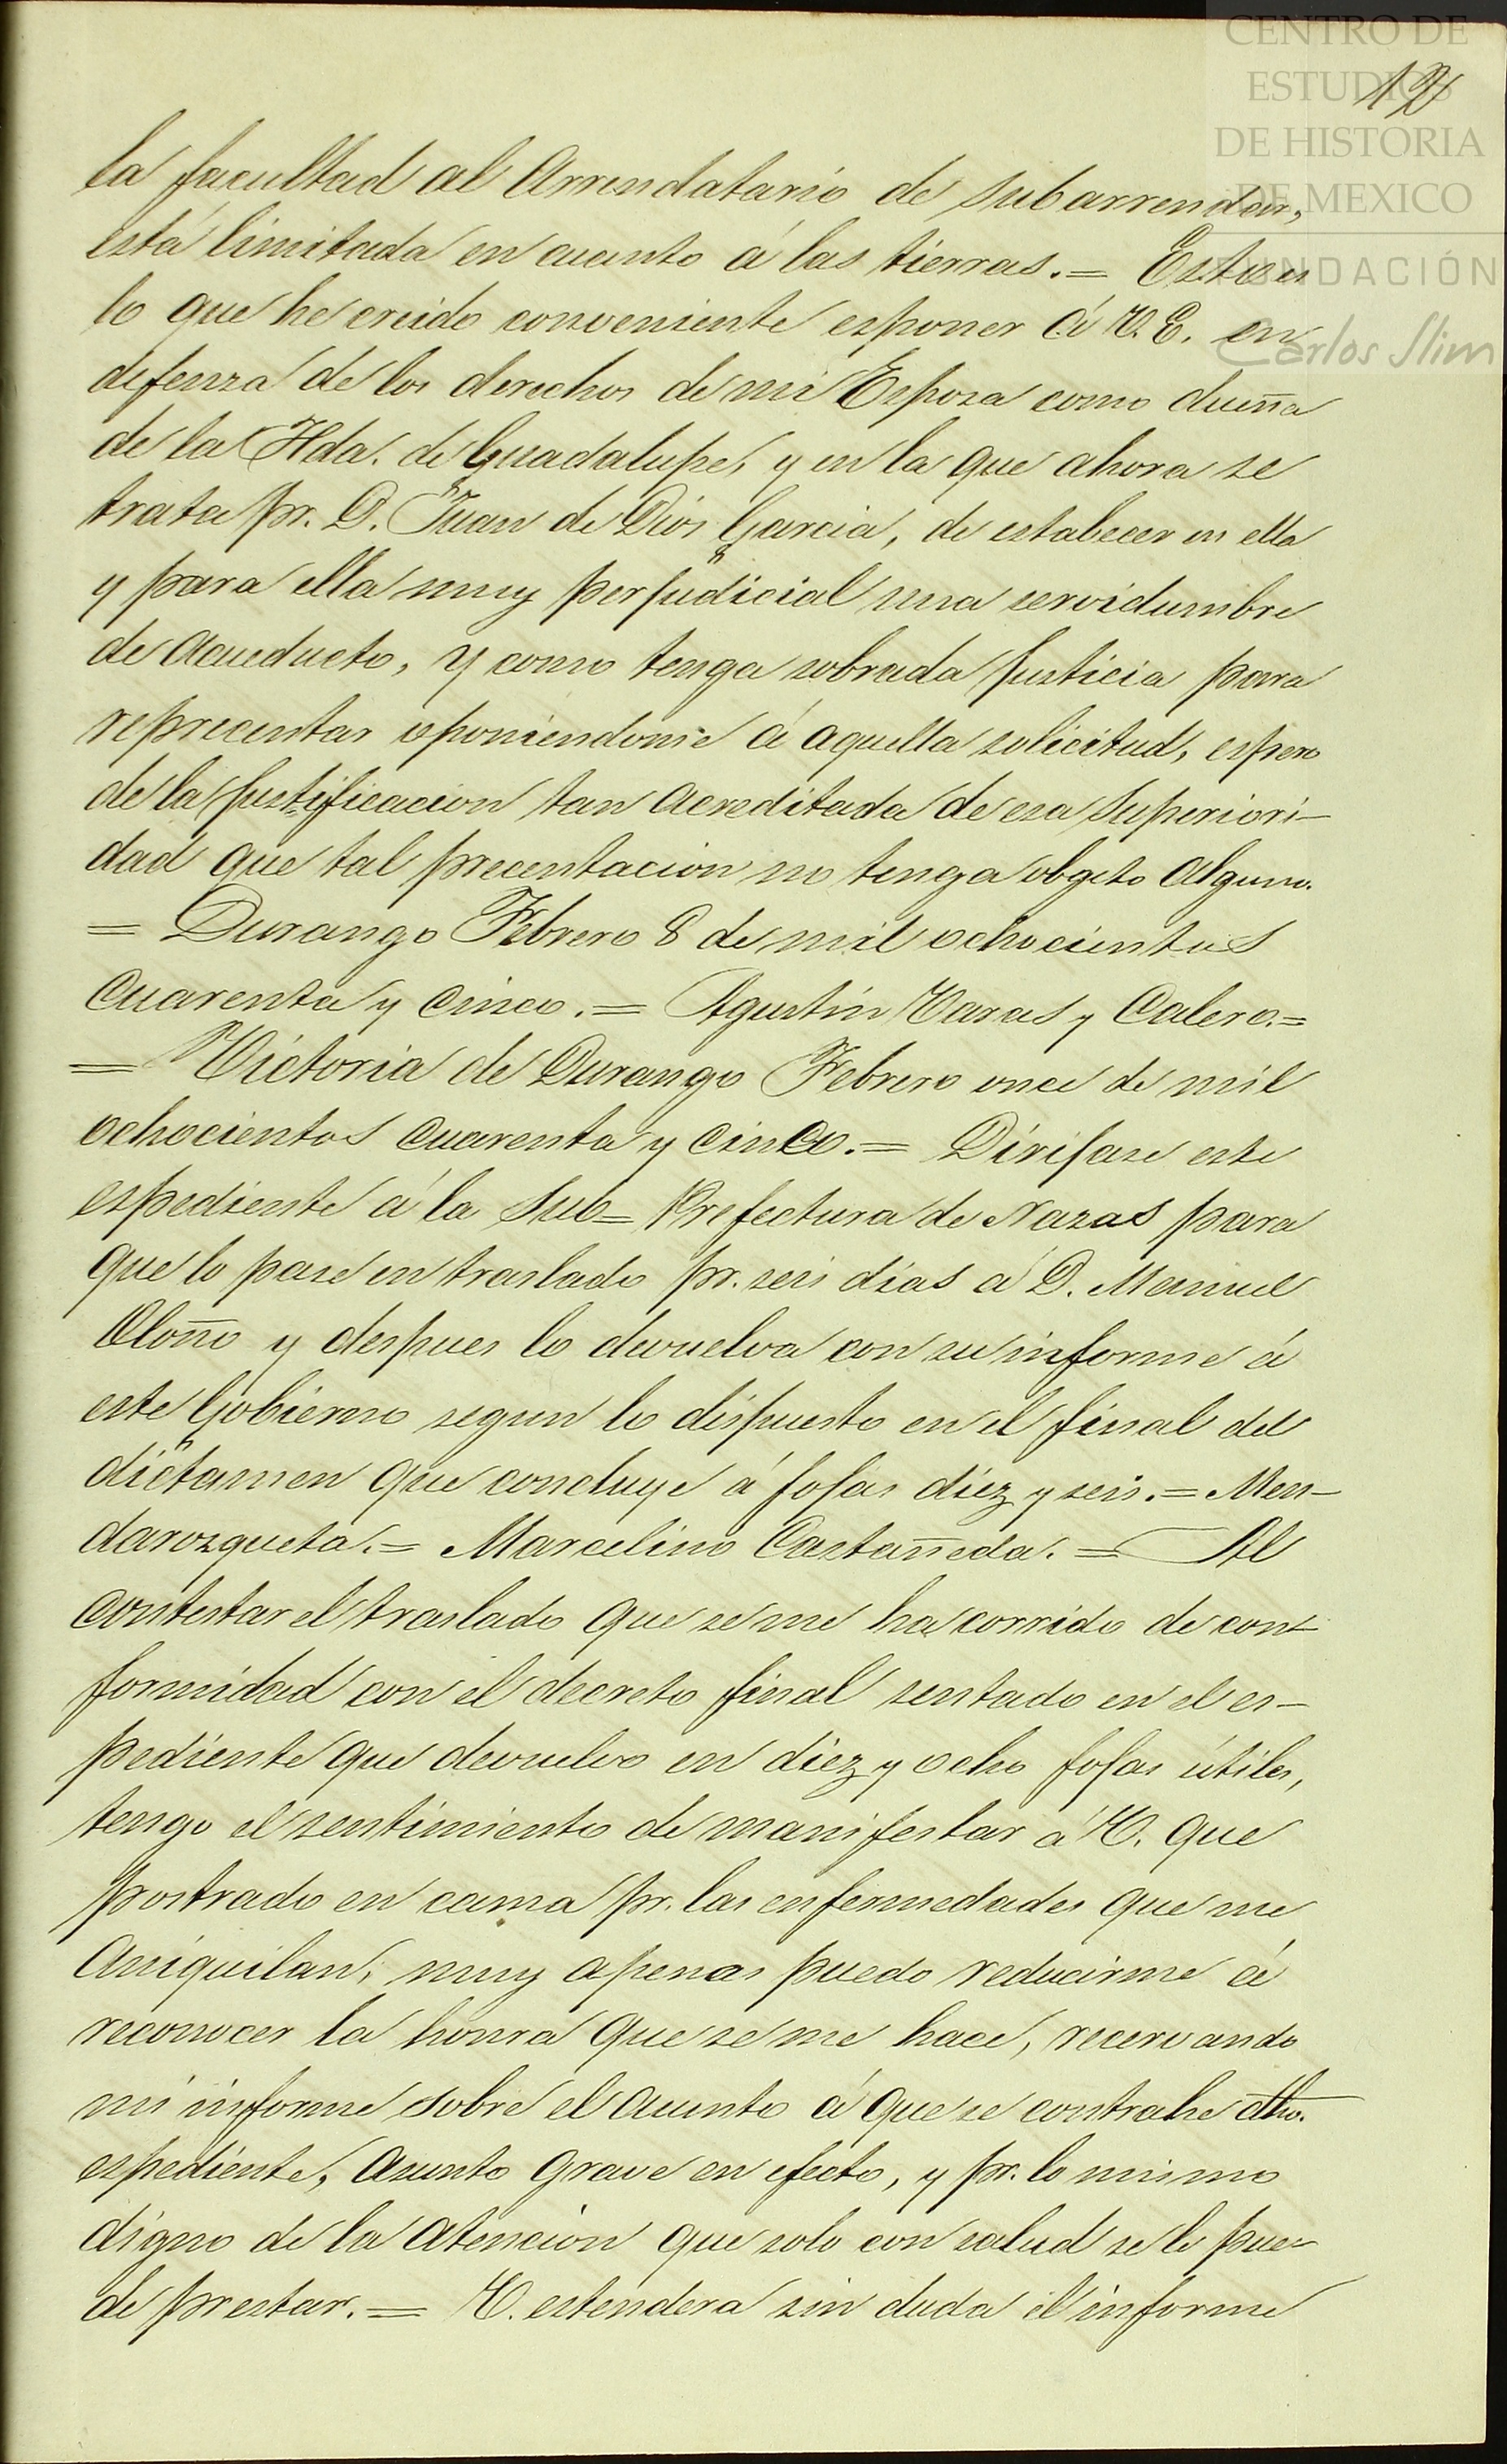 CENTRO DE
ESTUDIOS
DE HISTORIA
DE MEXICO
FUNDACIÓN
Carlos Slim
12
la facultad al Arrendatario de subarrendar,
está limitada en cuanto á las tierras.= Esto es
lo que he creido conveniente esponer á V.E. en
defenza de los derechos de mi Esposa como dueña
de la Hda. de Guadalupe, y en la que ahora se
trata pr. D. Juan de Dios Garcia, de estabecer en ella
y para ella muy perjudicial una servidumbre
de Acueducto, y como tenga sobrada justicia para
reprecentar oponiendome á aquella solicitud, espero
de la justificacion tan acreditada de esa Superiori-
dad que tal precentacion no tenga obgeto alguno.
= Durango Febrero 8 de mil ochocientos
cuarenta y cinco.= Agustin Varas y Calero.=
= Victoria de Durango Febrero once de mil
ochocientos cuarenta y cinco.= Dirijase este
espediente á la Sub= Prefectura de Nazas para
que lo pase en traslado pr. seis dias á D. Manuel
Oloño y despues lo devuelva con su informe á
este Gobierno segun lo dispuesto en el final del
dictamen que concluye á fojas diez y seis.= Men-
darozqueta.= Marcelino Castañeda.= Al
contestar el traslado que se me ha corrido de con-
formidad con el decreto final sentado en el es-
pediente que devuelvo en diez y ocho fojas útiles,
tengo el sentimiento de manifestar á V. que
postrado en cama pr. las enfermedades que me
aniquilan, muy apenas puedo reducirme á
reconocer la honra que se me hace, recervando
mi informe sobre el asunto á que se contrahe dho.
espediente, asunto grave en efecto, y pr. lo mismo
digno de la atencion que solo con salud se le pue-
de prestar.= V. estendera sin duda el informe